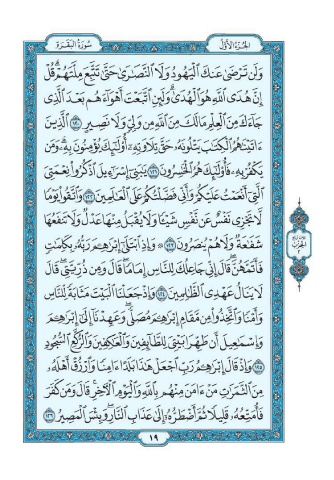 الجزء الأول
سورة البقرة
وَلَن تَرْضَىٰ عَنكَ ٱلْيَهُودُ وَلَا ٱلنَّصَٰرَىٰ حَتَّىٰ تَتَّبِعَ مِلَّتَهُمْ ۗ قُلْ
إِنَّ هُدَى ٱللَّهِ هُوَ ٱلْهُدَىٰ ۗ وَلَئِنِ ٱتَّبَعْتَ أَهْوَآءَهُم بَعْدَ ٱلَّذِى
جَآءَكَ مِنَ ٱلْعِلْمِ ۙ مَا لَكَ مِنَ ٱللَّهِ مِن وَلِىٍّ وَلَا نَصِيرٍ ١٢٠ ٱلَّذِينَ
ءَاتَيْنَٰهُمُ ٱلْكِتَٰبَ يَتْلُونَهُۥ حَقَّ تِلَاوَتِهِۦٓ أُو۟لَٰٓئِكَ يُؤْمِنُونَ بِهِۦ ۗ وَمَن
يَكْفُرْ بِهِۦ فَأُو۟لَٰٓئِكَ هُمُ ٱلْخَٰسِرُونَ ١٢١ يَٰبَنِىٓ إِسْرَٰٓءِيلَ ٱذْكُرُوا۟ نِعْمَتِىَ
ٱلَّتِىٓ أَنْعَمْتُ عَلَيْكُمْ وَأَنِّى فَضَّلْتُكُمْ عَلَى ٱلْعَٰلَمِينَ ١٢٢ وَٱتَّقُوا۟ يَوْمًا
لَّا تَجْزِى نَفْسٌ عَن نَّفْسٍ شَيْـًٔا وَلَا يُقْبَلُ مِنْهَا عَدْلٌ وَلَا تَنفَعُهَا
شَفَٰعَةٌ وَلَا هُمْ يُنصَرُونَ ١٢٣ ۞ وَإِذِ ٱبْتَلَىٰٓ إِبْرَٰهِـۧمَ رَبُّهُۥ بِكَلِمَٰتٍ
فَأَتَمَّهُنَّ ۖ قَالَ إِنِّى جَاعِلُكَ لِلنَّاسِ إِمَامًا ۖ قَالَ وَمِن ذُرِّيَّتِى ۖ قَالَ
لَا يَنَالُ عَهْدِى ٱلظَّٰلِمِينَ ١٢٤ وَإِذْ جَعَلْنَا ٱلْبَيْتَ مَثَابَةً لِّلنَّاسِ
وَأَمْنًا وَٱتَّخِذُوا۟ مِن مَّقَامِ إِبْرَٰهِـۧمَ مُصَلًّى ۖ وَعَهِدْنَآ إِلَىٰٓ إِبْرَٰهِـۧمَ
وَإِسْمَٰعِيلَ أَن طَهِّرَا بَيْتِىَ لِلطَّآئِفِينَ وَٱلْعَٰكِفِينَ وَٱلرُّكَّعِ ٱلسُّجُودِ
١٢٥ وَإِذْ قَالَ إِبْرَٰهِـۧمُ رَبِّ ٱجْعَلْ هَٰذَا بَلَدًا ءَامِنًا وَٱرْزُقْ أَهْلَهُۥ
مِنَ ٱلثَّمَرَٰتِ مَنْ ءَامَنَ مِنْهُم بِٱللَّهِ وَٱلْيَوْمِ ٱلْـَٔاخِرِ ۖ قَالَ وَمَن كَفَرَ
فَأُمَتِّعُهُۥ قَلِيلًا ثُمَّ أَضْطَرُّهُۥٓ إِلَىٰ عَذَابِ ٱلنَّارِ ۖ وَبِئْسَ ٱلْمَصِيرُ ١٢٦
١٩